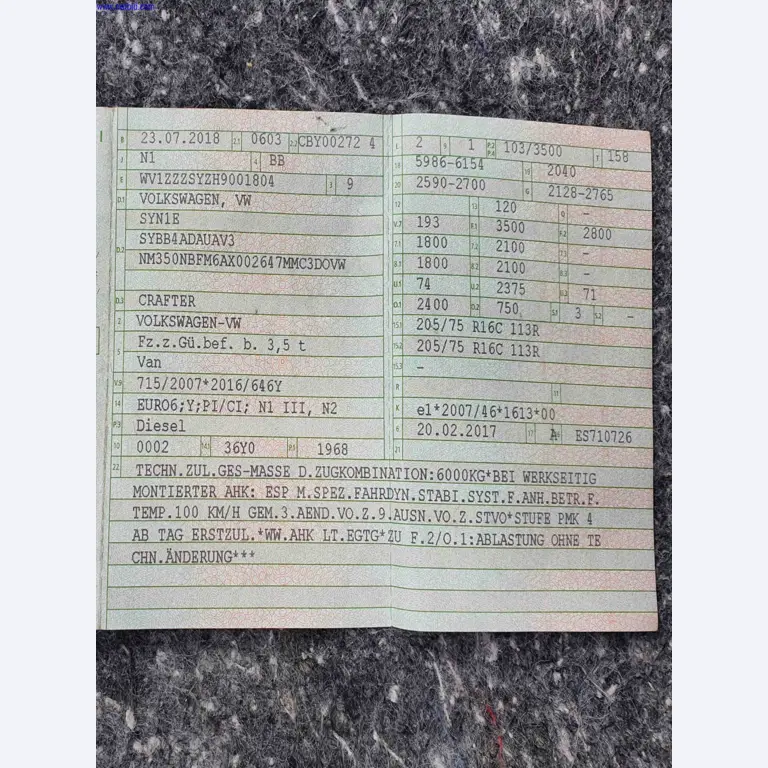 B 23.07.2018 2.1 0603 2.2 CBY00272 4
J N1 4 BB
E WV1ZZZSYZH9001804 3 9
D.1 VOLKSWAGEN, VW
SYN1E
D.2 SYBB4ADAUAV3
NM350NBFM6AX002647MMC3DOVW
D.3 CRAFTER
2 VOLKSWAGEN-VW
5 Fz.z.Gü.bef. b. 3,5 t
Van
V.9 715/2007*2016/646Y
14 EURO6;Y;PI/CI; N1 III, N2
P.3 Diesel
10 0002 14.1 36Y0 P.1 1968
L 2 9 1 P.2 P.4 103/3500 T 158
18 5986-6154 19 2040
20 2590-2700 G 2128-2765
12 13 120 Q -
V.7 193 F.1 3500 F.2 2800
7.1 1800 7.2 2100 7.3 -
8.1 1800 8.2 2100 8.3 -
U.1 74 U.2 2375 U.3 71
O.1 2400 O.2 750 S.1 3 S.2 -
15.1 205/75 R16C 113R
15.2 205/75 R16C 113R
15.3 -
R 11
K e1*2007/46*1613*00
6 20.02.2017 17 A 16 ES710726
21
22 TECHN.ZUL.GES-MASSE D.ZUGKOMBINATION:6000KG*BEI WERKSEITIG
MONTIERTER AHK: ESP M.SPEZ.FAHRDYN.STABI.SYST.F.ANH.BETR.F.
TEMP.100 KM/H GEM.3.AEND.VO.Z.9.AUSN.VO.Z.STVO*STUFE PMK 4
AB TAG ERSTZUL.*WW.AHK LT.EGTG*ZU F.2/O.1:ABLASTUNG OHNE TE
CHN.ÄNDERUNG***